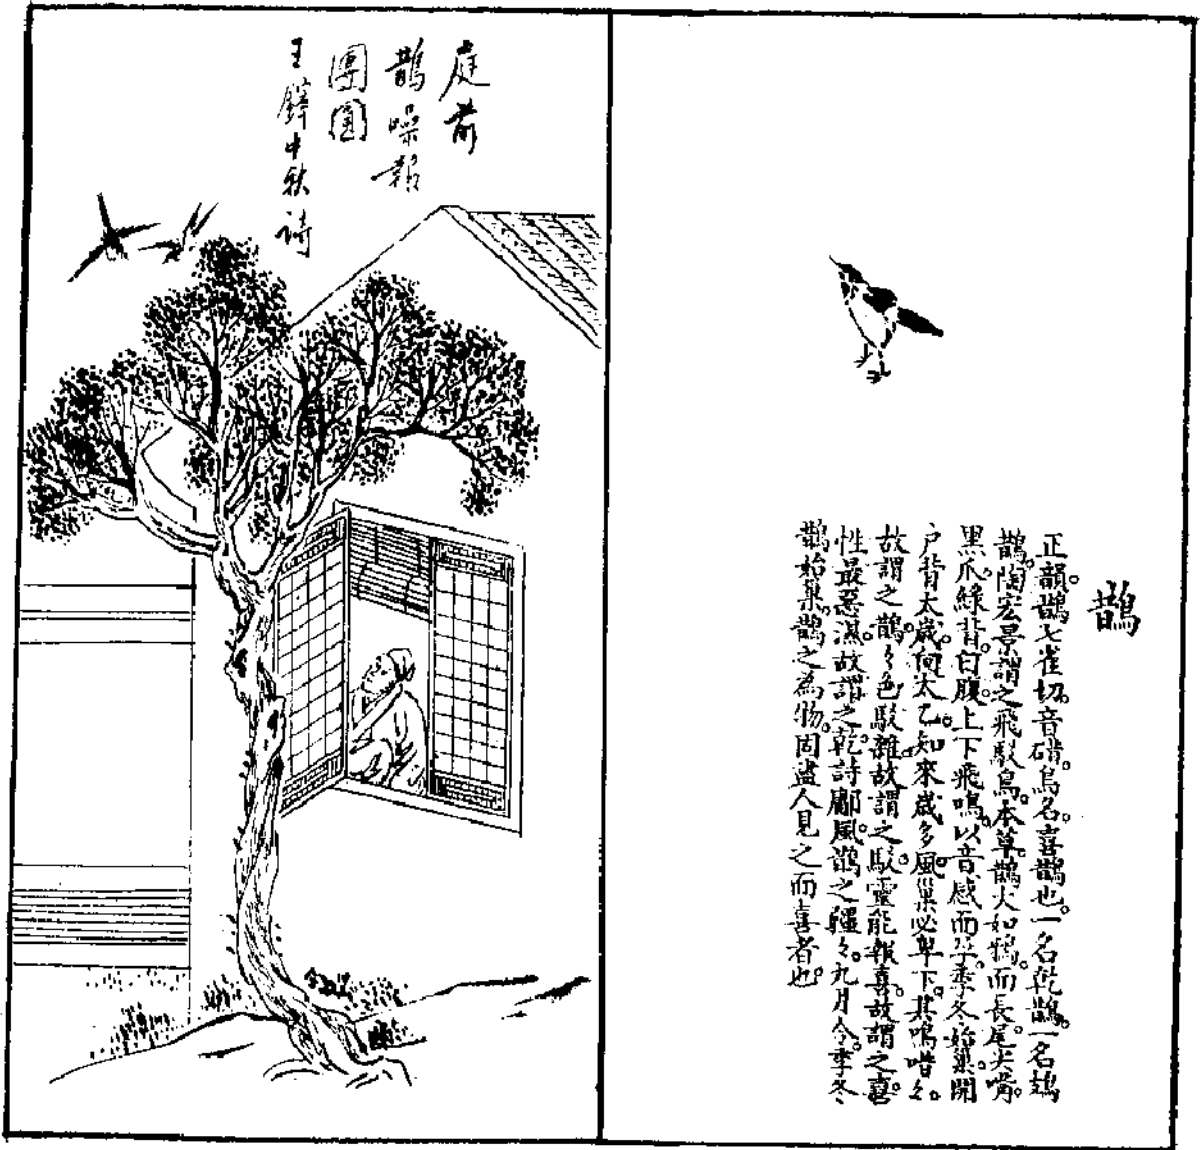 鵲
正韻。鵲七雀切。音碏。鳥名。喜鵲也。一名乾鵲。一名鳷
鵲。陶宏景謂之飛駁鳥。本草。鵲大如鴉而長尾。尖嘴。
黑爪。綠背。白腹。上下飛鳴。以音感而孕。季冬始巢。開
戶背太歲。向太乙。知來歲多風。巢必卑下。其鳴唶々。
故謂之鵲。々色駁雜。故謂之駁。靈能報喜。故謂之喜。
性最惡濕。故謂之乾。詩鄘風。鵲之疆々。九月令。季冬、
鵲始巢。鵲之為物。固益人見之而喜者也。
庭前
鵲噪報
團圓
王鐸中秋詩